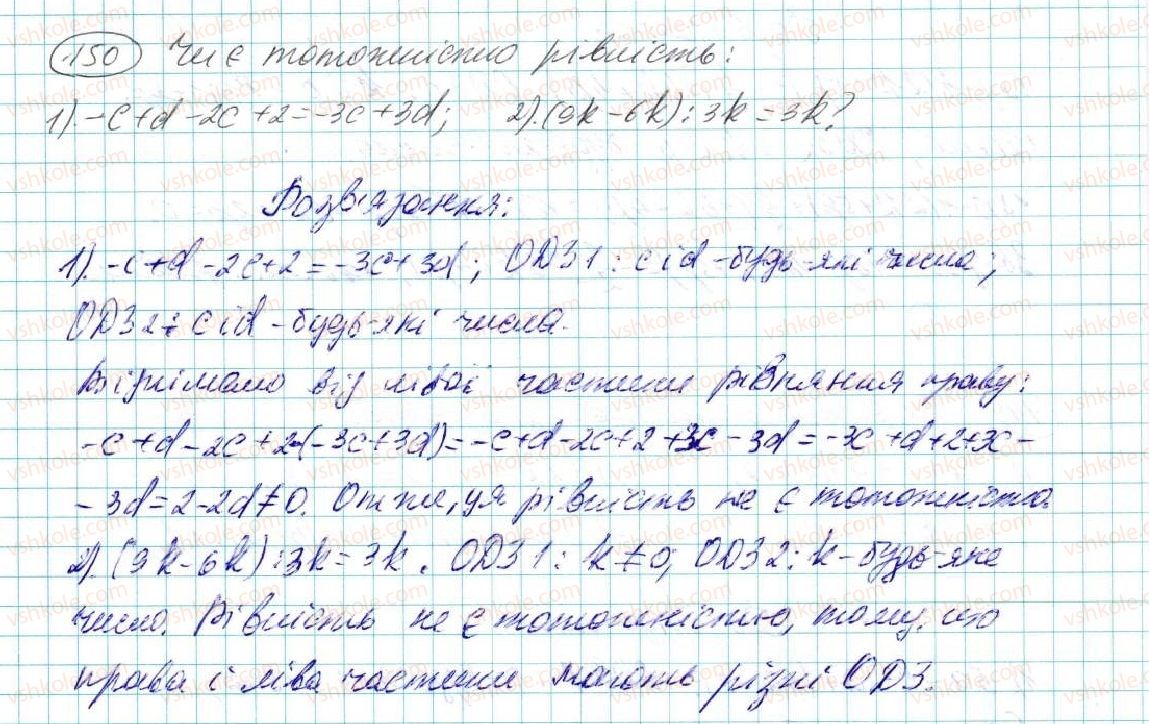 150 Чи є тотожністю рівність:
1). -c+d-2c+2=-3c+3d; 2). (9k-6k):3k=3k?
Розв'язання:
1). -c+d-2c+2=-3c+3d; ОДЗ1: c і d - будь-які числа;
ОДЗ2: c і d - будь-які числа.
Віднімемо від лівої частини рівняння праву:
-c+d-2c+2-(-3c+3d)=-c+d-2c+2+3c-3d=-3c+d+2+3c-
-3d=2-2d≠0. Отже, ця рівність не є тотожністю.
2). (9k-6k):3k=3k. ОДЗ1: k≠0; ОДЗ2: k-будь-яке
число. Рівність не є тотожністю, тому, що
права і ліва частини мають різні ОДЗ.